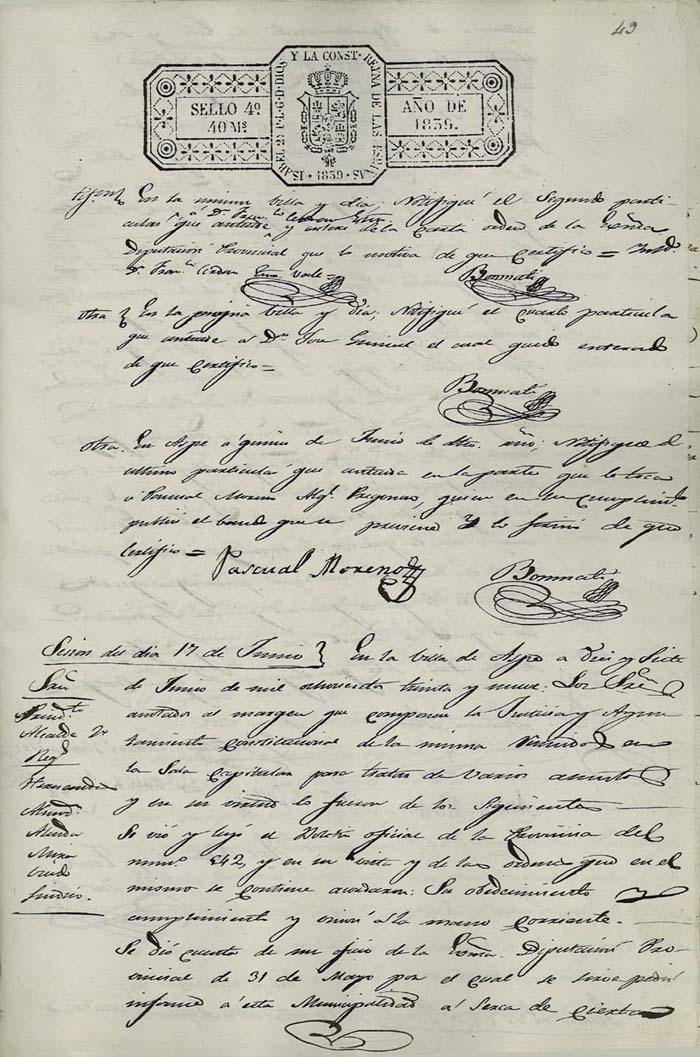 49
ISABEL 2ª P.L.G.D DIOS Y LA CONST. REINA DE LAS ESPAÑAS
· 1839 ·
SELLO 4º
40 Ms
AÑO DE
1839.
En la misma villa y dia; Notifiqué el Segundo parti-
cular que antecede y entera de la Carta orden de la Exma
Diputacion Provincial que lo motiva de que Certifico =
Bonmati
otra } En la propia villa y dia, Notifiqué el cuarto particular
que antecede a Dn José el cual quedó enterado
de que Certifico =
Bonmati
otra. En Aspe a quince de Junio de dho. año; Notifiqué el
ultimo particular que antecede en la parte que le toca
a Pascual Moreno Pregonero, quien en su cumplimto
publicó el bando que se previene y lo firmó de que
Certifico =
Pascual Moreno
Bonmati
Sesion del dia 17 de Junio } En la Villa de Aspe a Diez y Siete
Sres
de Junio de mil ochocientos treinta y nueve: Los Sres
Presidte
anotados al margen que componen la Justicia y Ayun
Alcalde 2º
tamiento Constitucional de la misma reunidos en
Regs
la Sala Capitular para tratar de varios asuntos
Hernandez
y en su virtud lo fueron de los Siguientes
Almodr
Se vió y leyó el Boletin oficial de la Provincia del
Alenda
numº 542, y en su vista y de las ordenes que en el
Mira
mismo se contiene acordaron: Su obedecimiento y
cumplimiento y unir á la mano corriente.
Sindico.
Se dió cuenta de un oficio de la Exma. Diputacion Pro-
vincial de 31 de Mayo por el cual se sirve pedir
informe a esta Municipalidad a serca de ciertas